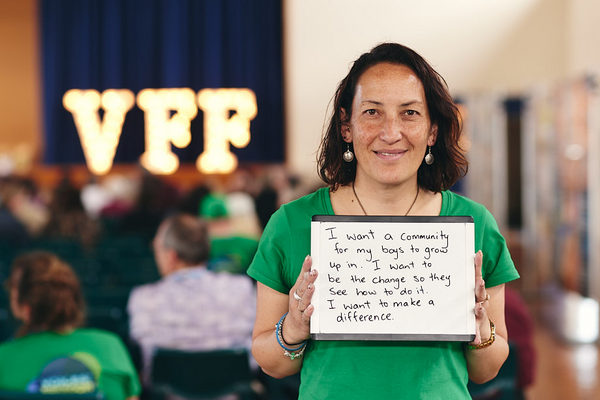 VFF
I want a community
for my boys to grow
up in. I want to
be the change so they
see how to do it.
I want to make a
difference.